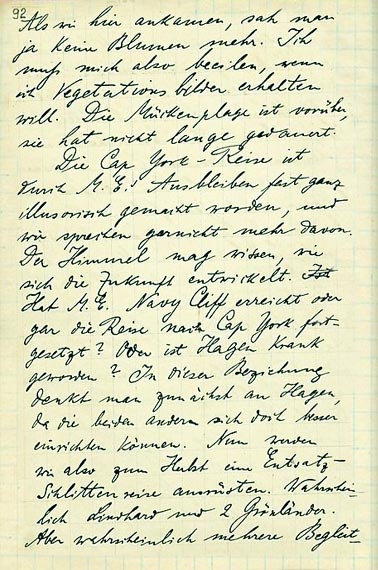 92
Als wir hier ankamen, sah man
ja keine Blumen mehr. Ich
muss mich also beeilen, wenn
ich Vegetationsbilder erhalten
will. Die Mückenplage ist vorüber,
sie hat nicht lange gedauert.
Die Cap York-Reise ist
durch M. E.' Ausbleiben fast ganz
illusorisch gemacht worden, und
wir sprechen garnicht mehr davon.
Der Himmel mag wissen, wie
sich die Zukunft entwickelt.
Hat M. E. Navy Cliff erreicht oder
gar die Reise nach Cap York fort-
gesetzt? Oder ist Hagen krank
geworden? In dieser Beziehung
denkt man zunächst an Hagen,
da die beiden andern sich doch besser
einrichten können. Nun werden
wir also zum Herbst eine Entsatz-
Schlittenreise ausrüsten. Wahrschein-
lich Lindhard und 2 Grönländer.
Aber wahrscheinlich mehrere Begleit-